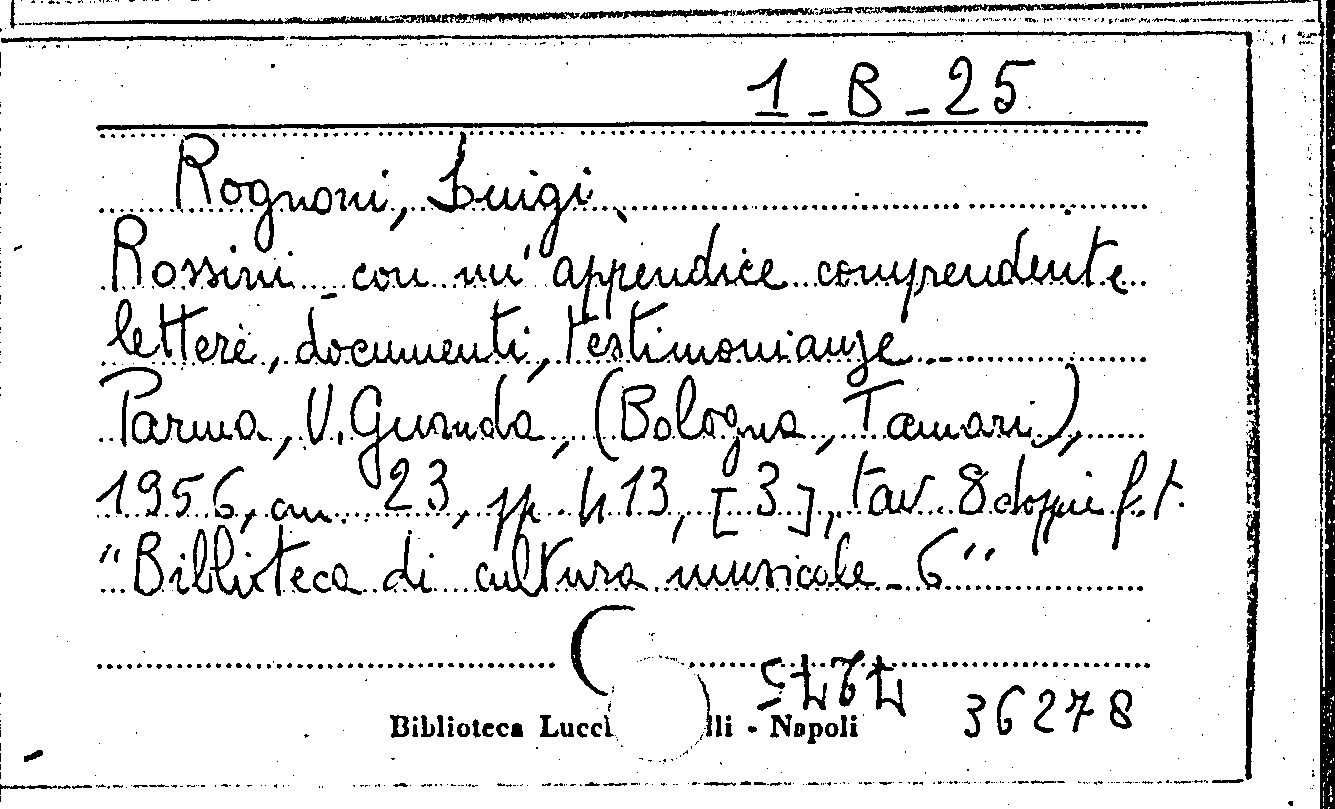 1 - B - 25
Rognoni, Luigi
Rossini - con un' appendice comprendente
lettere, documenti, testimonianze
Parma, U. Guanda, (Bologna, Tamari),
1956, cm. 23, pp. 413, [3], tav. 8 doppie f.t.
"Biblioteca di cultura musicale - 6"
36278
Biblioteca Lucc lli - Napoli